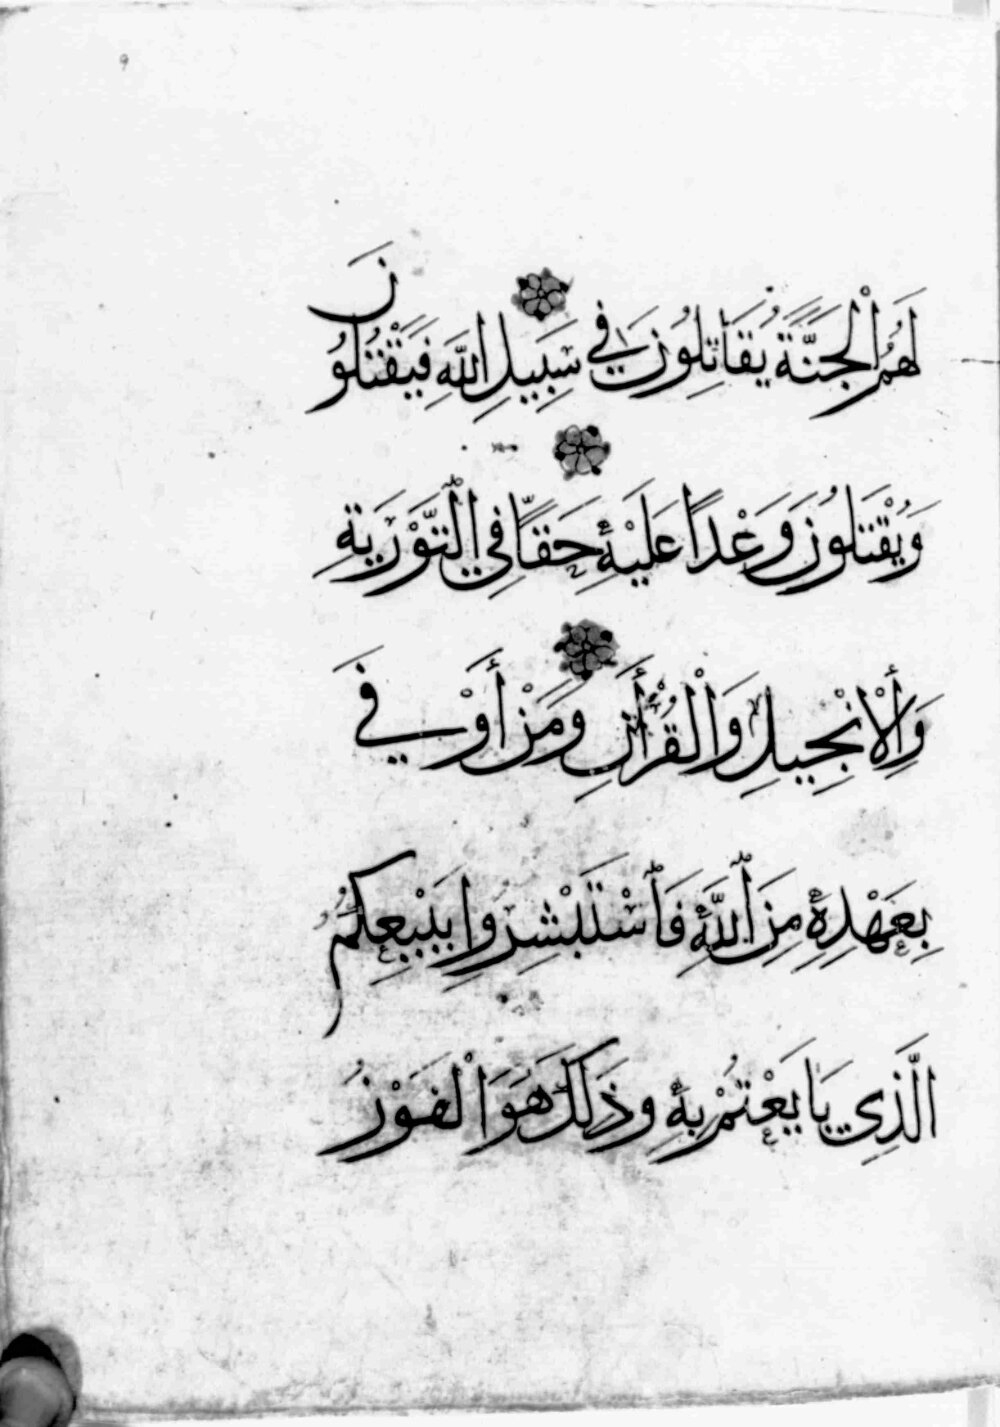 9
لَهُمُ الْجَنَّةَ يُقَاتِلُونَ فِي سَبِيلِ اللَّهِ فَيَقْتُلُونَ
وَيُقْتَلُونَ وَعْدًا عَلَيْهِ حَقًّا فِي التَّوْرَيةِ
وَالْإِنْجِيلِ وَالْقُرْأَنِ وَمَنْ أَوْفَى
بِعَهْدِهِ مِنَ اللَّهِ فَاسْتَبْشِرُوا بِبَيْعِكُمُ
الَّذِي بَايَعْتُمْ بِهِ وَذَلِكَ هُوَ الْفَوْزُ